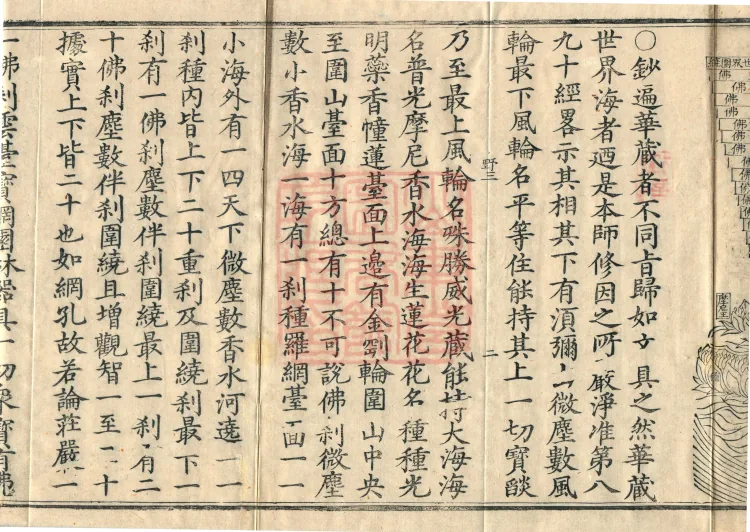 佛
佛
佛
佛
佛
佛
佛
佛
佛
佛
摩尼王
〇鈔遍華藏者不同旨歸如具之然華藏
世界海者迺是本師修因之所嚴淨准第八
九十經畧示其相其下有須彌山微塵數風
輪最下風輪名平等住能持其上一切寶燄
野三 二
乃至最上風輪名殊勝威光藏能持大海海
名普光摩尼香水海海生蓮花花名種種光
明蘂香幢蓮臺面上邊有金剛輪圍山中央
至圍山臺面十方總有十不可說佛刹微塵
數小香水海一海有一刹種羅網臺面一一
小海外有一四天下微塵數香水河遶一一
刹種內皆上下二十重刹及圍繞刹最下一
刹有一佛刹塵數伴刹圍繞最上一刹有二
十佛刹塵數伴刹圍繞且增觀智一至二十
據實上下皆二十也如網孔故若論莊嚴一
一佛刹雲臺寶網園林器具一切眾寶有佛